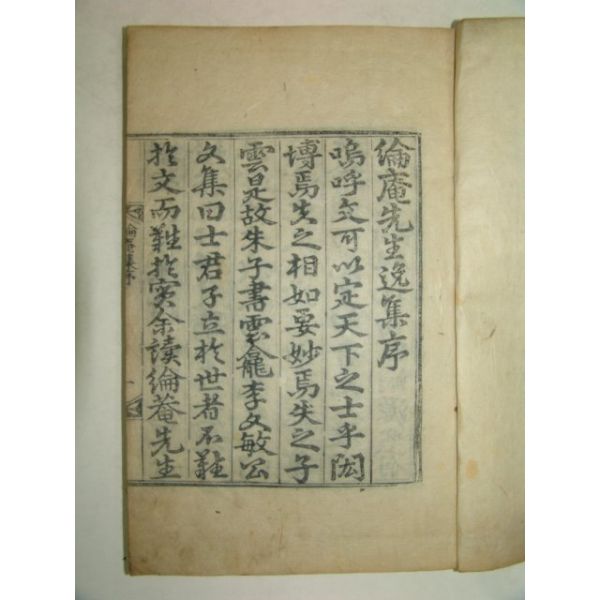 綸庵先生逸集序
嗚呼文可以定天下之士乎閎
博焉失之相如要妙焉失之子
雲是故朱子書雲龕李文敏公
文集曰士君子立扵世者不難
扵文而難扵實余讀綸菴先生
綸菴集序
一